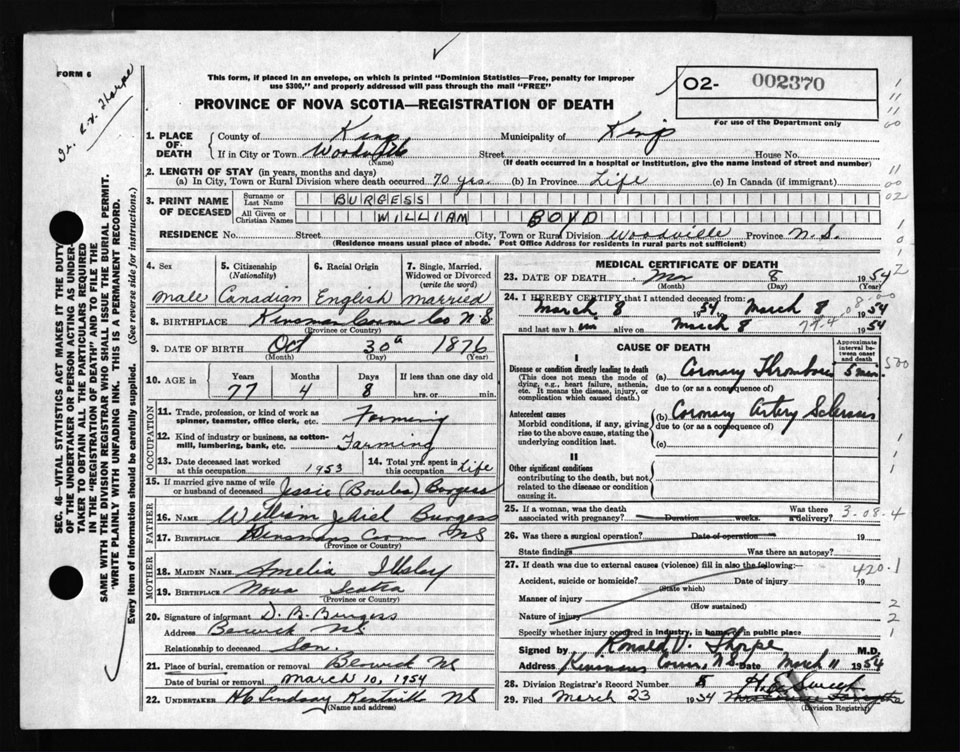 FORM 6
This form, if placed in an envelope, on which is printed "Dominion Statistics—Free, penalty for improper
use $300," and properly addressed will pass through the mail "FREE"
PROVINCE OF NOVA SCOTIA—REGISTRATION OF DEATH
O2- 002370
For use of the Department only
SEC. 46—VITAL STATISTICS ACT MAKES IT THE DUTY
OF THE UNDERTAKER OR PERSON ACTING AS UNDER-
TAKER TO OBTAIN ALL THE PARTICULARS REQUIRED
IN THE "REGISTRATION OF DEATH" AND TO FILE THE
SAME WITH THE DIVISION REGISTRAR WHO SHALL ISSUE THE BURIAL PERMIT.
WRITE PLAINLY WITH UNFADING INK. THIS IS A PERMANENT RECORD.
Every item of Information should be carefully supplied. (See reverse side for instructions.)
1. PLACE OF DEATH County of Kings Municipality of Kings
If in City or Town Woodville Street House No.
(Name) (If death occurred in a hospital or institution, give the name instead of street and number)
2. LENGTH OF STAY (in years, months and days)
(a) In City, Town or Rural Division where death occurred 70 yrs. (b) In Province Life (c) In Canada (if immigrant)
3. PRINT NAME OF DECEASED Surname or Last Name BURGESS
All Given or Christian Names WILLIAM BOYD
RESIDENCE No. Street City, Town or Rural Division Woodville Province N.S.
(Residence means usual place of abode. Post Office Address for residents in rural parts not sufficient)
4. Sex 5. Citizenship (Nationality) 6. Racial Origin 7. Single, Married, Widowed or Divorced (write the word)
Male Canadian English Married
8. BIRTHPLACE Kinsman Corn Co N.S.
(Province or Country)
9. DATE OF BIRTH Oct 30 1876
(Month) (Day) (Year)
10. AGE in Years Months Days If less than one day old
77 4 8 hrs. or min.
OCCUPATION
11. Trade, profession, or kind of work as spinner, teamster, office clerk, etc. Farming
12. Kind of industry or business, as cotton-mill, lumbering, bank, etc. Farming
13. Date deceased last worked at this occupation 1953 14. Total yrs. spent in this occupation Life
15. If married give name of wife or husband of deceased Jessie (Bowles) Burgess
FATHER
16. NAME William Jehiel Burgess
17. BIRTHPLACE Kinsmans Corn NS
(Province or Country)
MOTHER
18. MAIDEN NAME Amelia Illsley
19. BIRTHPLACE Nova Scotia
(Province or Country)
20. Signature of informant D. B. Burgess
Address Berwick NS
Relationship to deceased Son.
21. Place of burial, cremation or removal Berwick NS
Date of burial or removal March 10, 1954
22. UNDERTAKER Lindsay Kentville NS
(Name and address)
MEDICAL CERTIFICATE OF DEATH
23. DATE OF DEATH Mar 8 1954
(Month) (Day) (Year)
24. I HEREBY CERTIFY that I attended deceased from:
March 8 1954 to March 8 1954
and last saw him alive on March 8 1954
CAUSE OF DEATH
Approximate interval between onset and death
I
Disease or condition directly leading to death
(This does not mean the mode of dying, e.g., heart failure, asthenia, etc. It means the disease, injury, or complication which caused death.)
(a) Coronary Thrombosis 5 min.
due to (or as a consequence of)
Antecedent causes
Morbid conditions, if any, giving rise to the above cause, stating the underlying condition last.
(b) Coronary Artery Sclerosis
due to (or as a consequence of)
(c)
II
Other significant conditions
contributing to the death, but not related to the disease or condition causing it.
25. If a woman, was the death associated with pregnancy? Duration weeks. Was there a delivery?
3-08.4
26. Was there a surgical operation? Date of operation 19
State findings Was there an autopsy?
27. If death was due to external causes (violence) fill in also the following:
420.1
Accident, suicide or homicide? Date of injury 19
(State which)
Manner of injury
(How sustained)
Nature of injury
Specify whether injury occurred in industry, in home, or in public place
Signed by Ronald V. Thorpe M.D.
Address Kinsmans Corner, N.S. Date March 11 1954
28. Division Registrar's Record Number 8
29. Filed March 23 1954
(Division Registrar)